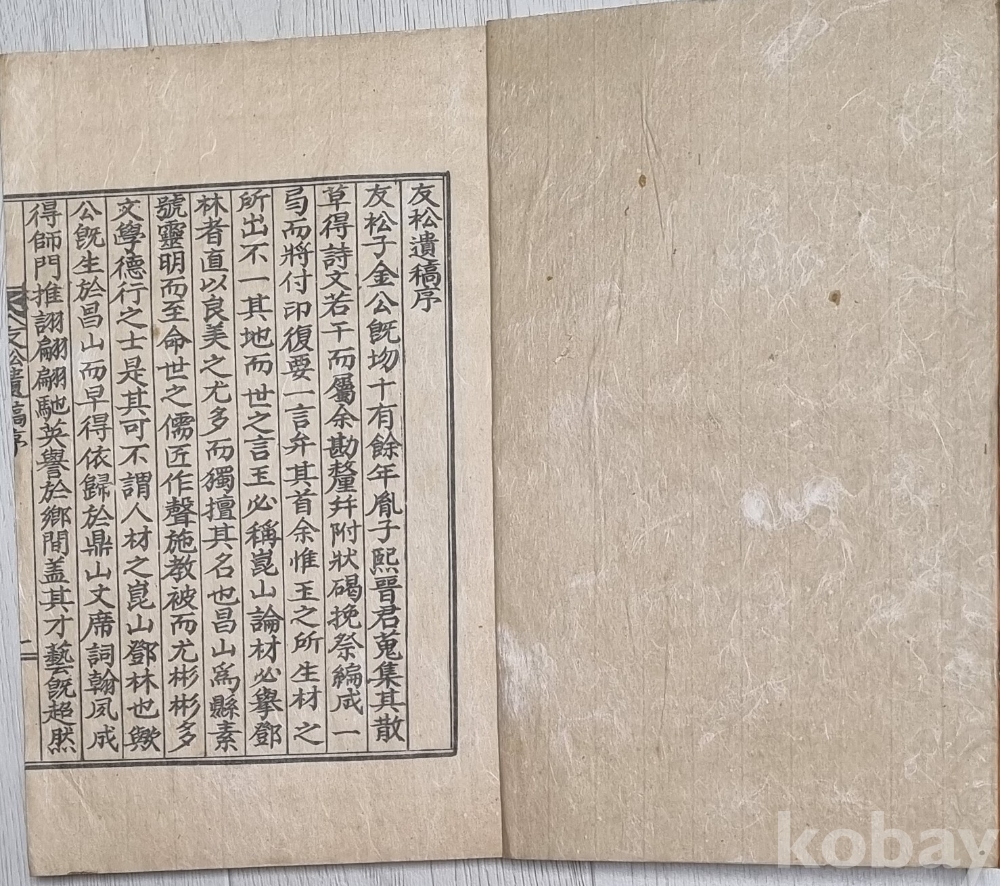 友松遺稿序
友松子金公旣坳十有餘年胤子熙晋君蒐集其散
草得詩文若干而屬余勘釐幷附狀碣挽祭編成一
弓而將付印復要一言弁其首余惟玉之所生材之
所出不一其地而世之言玉必稱崑山論材必擧鄧
林者直以良美之尤多而獨擅其名也昌山爲縣素
號靈明而至命世之儒匠作聲施教被而尤彬彬多
文學德行之士是其可不謂人材之崑山鄧林也歟
公旣生於昌山而早得依歸於鼎山文席詞翰夙成
得師門推詡翩翩馳英譽於鄕間盖其才藝旣超然
友松遺稿序
一
kobay